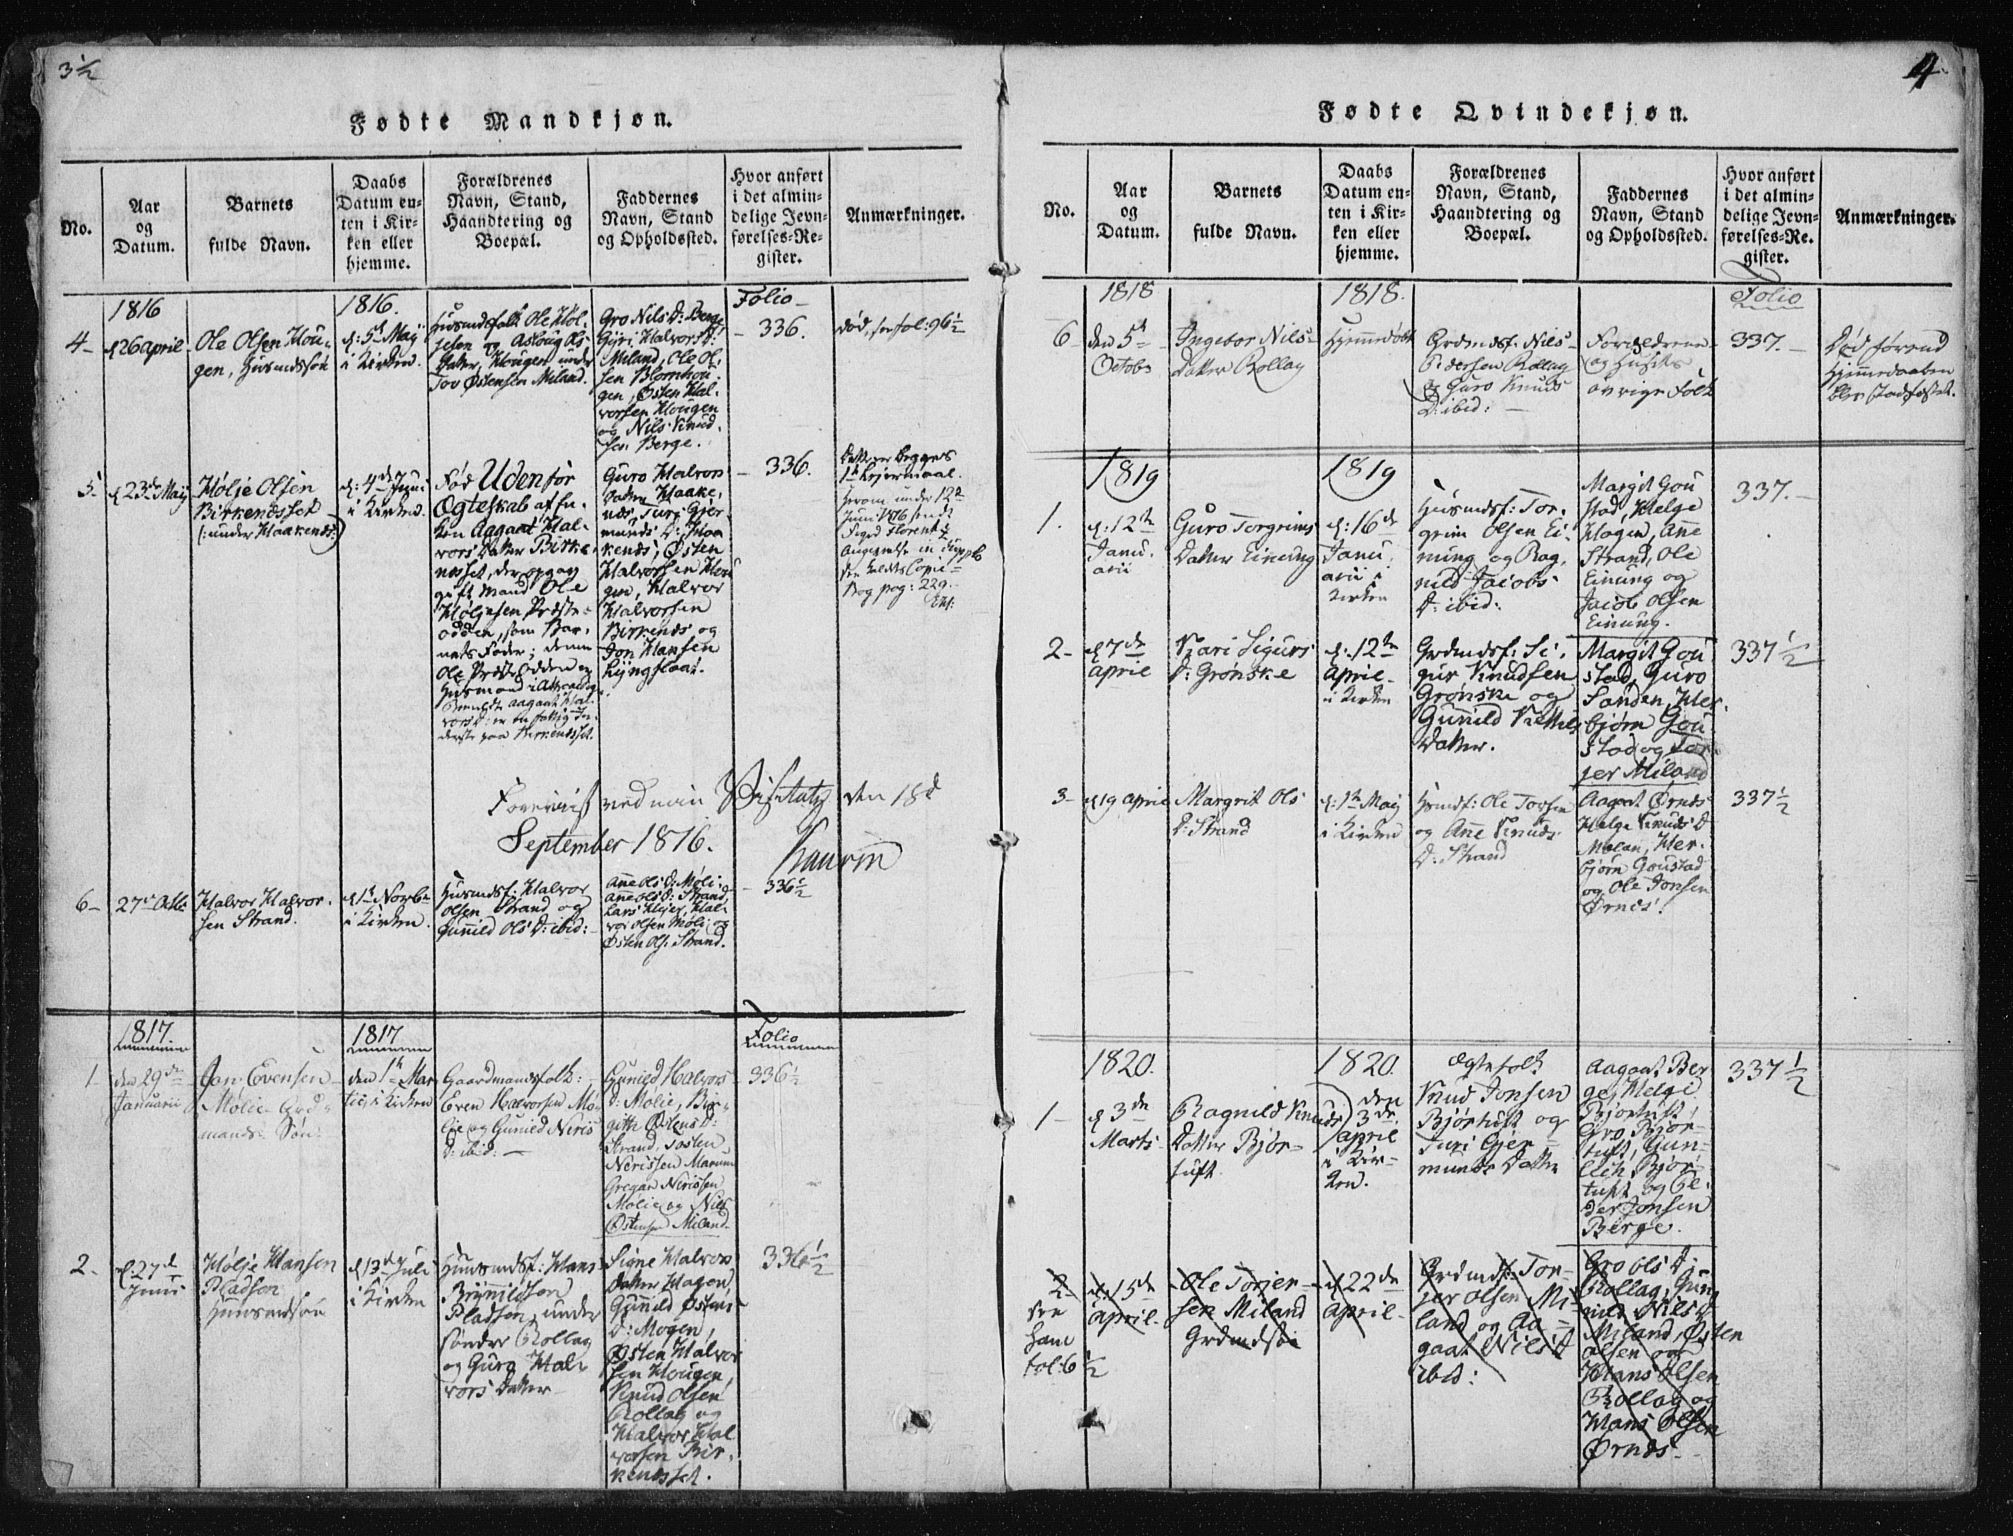 3½
Fødte Mandkjøn.
No.
Aar
og
Datum.
Barnets
fulde Navn.
Daabs
Datum en-
ten i Kir-
ken eller
hjemme.
Forældrenes
Navn, Stand,
Haandtering og
Boepæl.
Faddernes
Navn, Stand
og Opholdssted.
Hvor anført
i det almin-
delige Jevn-
førelses-Re-
gister.
Anmærkninger.
1816
1816.
Folio
4-
26 April
Ole Olsen Hou-
gen, Huusmdssøn
d: 5te Maij
i Kirken.
Huusmdsfolk Ole Høl-
jesen og Aslaug Ols
Datter, Hougen under
Tov Østensen Miland.
Gro Nils D: Berge
Gyri Halvors D:
Miland, Ole Ol-
sen Blomhou-
gen, Østen Hal-
vorsen Hougen
og Nils Knud-
sen Berge.
336.
død, see fol: 96½
5-
d 23de Maij
Hølje Olsen
Birkenesset
(: under Haakenæs:)
d: 4de Juni
i Kirken.
Fød Uden for
Ægteskab af En-
ken Aagaat Hal-
vors Datter Birke-
nesset, der opgav
gift Mand Ole
Høljesen Præste-
odden, som Bar-
nets Fader; denne
Ole Præstodden er
Huusmand i
Aagaat Hal-
vors D: er en fattig In-
derste paa Birkenesset.
Guro Halvors
Datter Haake-
næs, Turi Gjer-
munds D: Haa-
kenæs, Østen
Halvorsen Hou-
gen, Halvor
Halvorsen
Birkenæs og
Jon Hansen
Lyngflaat.
336.
Dette er Begges
1te Lejermaal.
Herom under 12te
Juni 1816 sendt
Foged Florentz
Angivelse in
Bog pag: 229.
Foreviist ved min Visitatz den 18d
September 1816.
Kaurin
6-
27de Octbr
Halvor Halvor-
sen Strand.
d 1te Novbr
i Kirken.
Huusmdsf: Halvor
Olsen Strand og
Gunild Ols D: ibid:
Anne Ols D: Møli-
Anne Ols D: Strand,
Lars Mejer, Hal-
vor Olsen Møli og
Østen Ols: Strand.
336½
1817.
1817
Folio
1
den 29de
Januarii
Jon Evensen
Mølie Grd-
mands Søn
den 1te Mar-
tii i Kirken
Gaardmandsfolk:
Even Halvorsen Mø-
lie og Gunild Neris
D: ibid:
Gunild Halvors
D: Mølie, Bir-
gith Østens D:
Strand, Tosten
Nerissen Marum
Gregar Nerissen
Mølie og Nils
Østensen Miland.
336½
2-
d. 27de
Juni
Hølje Hansen
Pladsen
Huusmdssøn
d 13de Juli
i Kirken
Huusmdsf: Hans
Brynildsen
Pladsen, under
søndre Rollag
og Guro Hal-
vors Datter
Signe Halvors
Datter Hagen,
Gunild Østens
D: Mogen,
Østen Halvor-
sen Hougen,
Knud Olsen
Rollag og
Halvor Hal-
vorsen Bir-
kenesset.
336½
4
Fødte Qvindekjøn.
No.
Aar
og
Datum.
Barnets
fulde Navn.
Daabs
Datum en-
ten i Kir-
ken eller
hjemme.
Forældrenes
Navn, Stand,
Haandtering og
Boepæl.
Faddernes
Navn, Stand
og Opholdssted.
Hvor anført
i det almin-
delige Jevn-
førelses-Re-
gister.
Anmærkninger.
1818
1818.
Folio
6
den 5te
Octobr
Ingebor Nils-
Datter Rollag
Hjemmedøbt
Grdmdsf: Nils
Pedersen Rollag
og Guro Knuds
D: ibid:
Forældrene
og Husets
øvrige Folk
337.
Død førend
Hjemmedaaben
blev stadfæstet.
1819
1819
1.
d: 12te
Janu-
arii
Guro Torgrims
Datter Einung
d: 16de
Janu-
arii i
Kirken
Huusmdsf: Tor-
grim Olsen Ei-
nung og Rag-
nild Jacobs
D: ibid:
Margit Gou-
stad, Helge
Hagen, Anne
Strand, Ole
Einung og
Jacob Olsen
Einung.
337.
2-
d 7de
April
Kari Sigurs
D: Grønske
d: 12te
April
i Kirken
Grdmdsf: Si-
gur Knudsen
Grønske og
Gunild Kittils
Datter.
Margit Gou-
stad, Guro
Sanden, Her-
bjørn Gou-
stad og Tor-
jer Miland
337½
3-
d 19 April
Margrit Ols
D: Strand
d: 1te Maij
i Kirken
Hsmdsf: Ole Tovsen
og Anne Knuds
D: Strand
Aagaat Ørnæs
Helge Knuds D
Melan, Her-
bjørn Goustad
og Ole Jonsen
Ørnæs.
337½
1820.
1820.
1-
d 3de
Marts
Ragnild Knuds
Datter Bjør-
tuft.
den
3de
April
i Kir-
ken.
Ægtefolk
Knud Jonsen
Bjørtuft og
Turi Gjer-
munds Datter
Aagaat Ber-
ge, Helge
Bjørtuft,
Gro Bjør-
tuft, Gun-
leik Bjør-
tuft og Pe-
der Jonsen
Berge.
337½
2
see
Han
fol: 6½
d. 15de
April
Ole Torjer-
sen Miland
Grdmdssøn
d 22de
April
Grdmdsf: Tor-
jer Olsen Mi-
land og Aa-
gaat Nils D
ibid:
Gro Ols D:
Rollag, Gun-
nild Nils D
Miland, Østen
Olsen og
Hans Olsen
Rollag og
Hans Olsen
Ørnæs